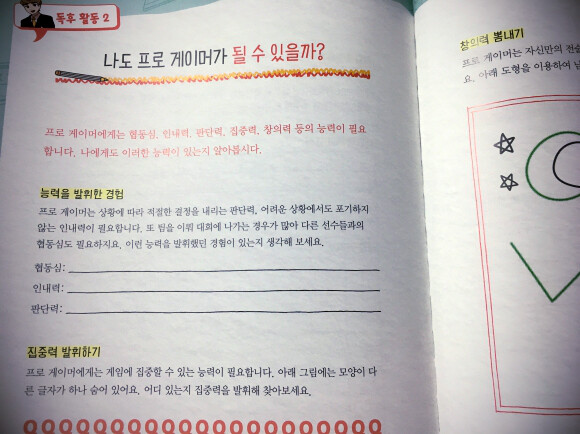 독후 활동 2
나도 프로 게이머가 될 수 있을까?
프로 게이머에게는 협동심, 인내력, 판단력, 집중력, 창의력 등의 능력이 필요
합니다. 나에게도 이러한 능력이 있는지 알아봅시다.
능력을 발휘한 경험
프로 게이머는 상황에 따라 적절한 결정을 내리는 판단력, 어려운 상황에서도 포기하지
않는 인내력이 필요합니다. 또 팀을 이뤄 대회에 나가는 경우가 많아 다른 선수들과의
협동심도 필요하지요. 이런 능력을 발휘했던 경험이 있는지 생각해 보세요.
협동심:
인내력:
판단력:
집중력 발휘하기
프로 게이머에게는 게임에 집중할 수 있는 능력이 필요합니다. 아래 그림에는 모양이 다
른 글자가 하나 숨어 있어요. 어디 있는지 집중력을 발휘해 찾아보세요.
QQQQQQQQQQQQQQQQQQQQQQ
창의력 뽐내기
프로 게이머는 자신만의 전술
요. 아래 도형을 이용하여